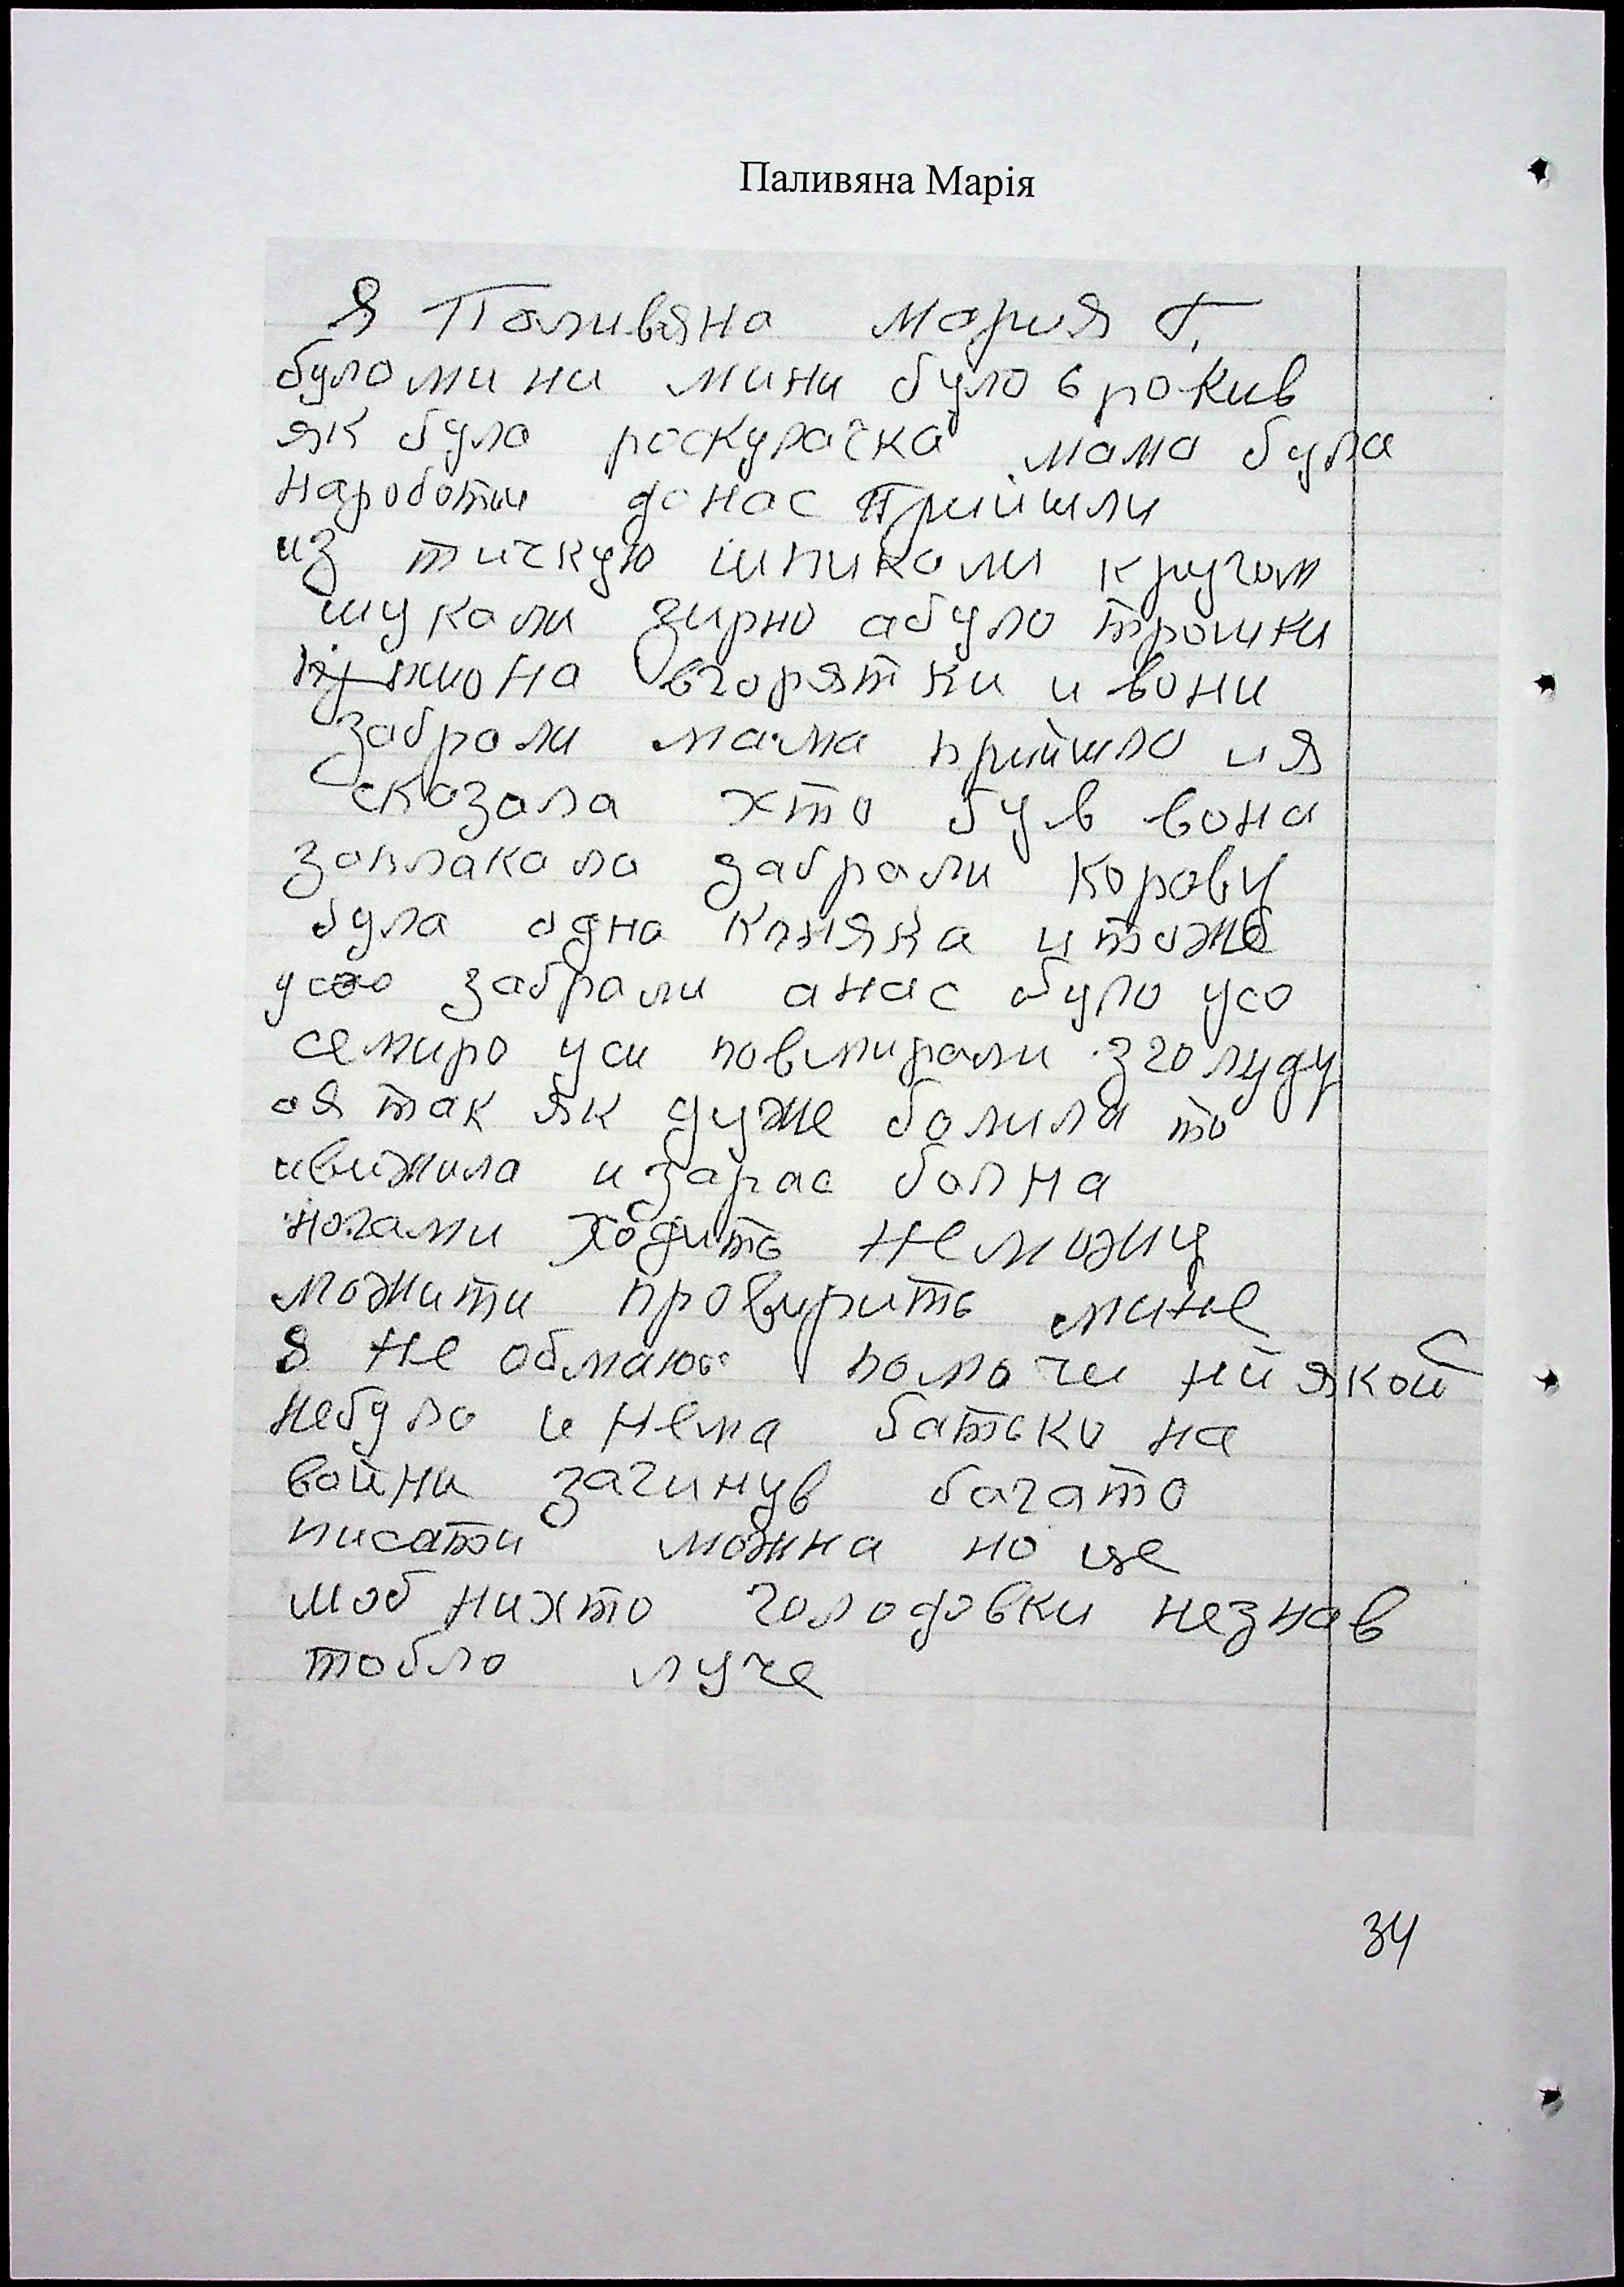 Паливяна Марія
Я Паливяна Мария Г.
було мини мини було 6 рокив
як була роскурачка мама була
на роботи до нас прийшли
из тичкую шпикали кругом
шукали зирно а було трошки
пшиона вгорятки и вони
забрали мама прийшла и я
сказала хто був вона
заплакала забрали корову
була одна кляка и тоже
усо забрали а нас було усо
семиро уси повмирали з голуду
а я так як дуже болила то
ивижила и зарас болна
ногами ходить неможу
можити провирить мине
я не обмаюю помочи ниякой
небуло и нема батько на
войни загинув багато
писати можна но це
шоб нихто голодовки незнав
то бло луче
34